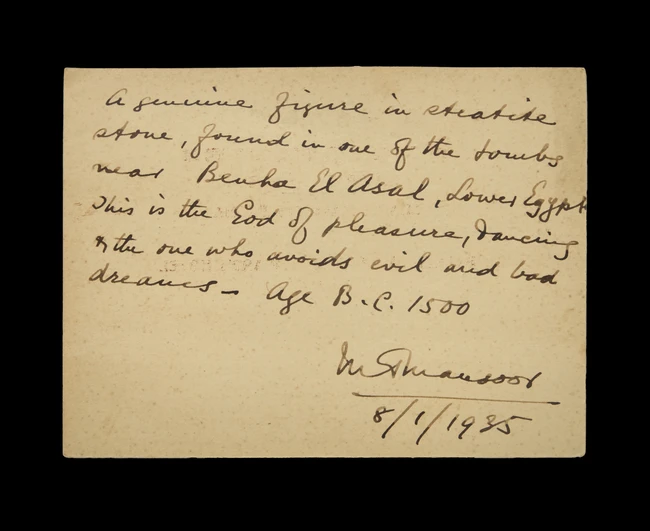 A genuine figure in steatite
stone, found in one of the tombs
near Benha El Asal, Lower Egypt
This is the God of pleasure, dancing
& the one who avoids evil and bad
dreams – Age B.C. 1500
M A Mansoor
8/1/1935